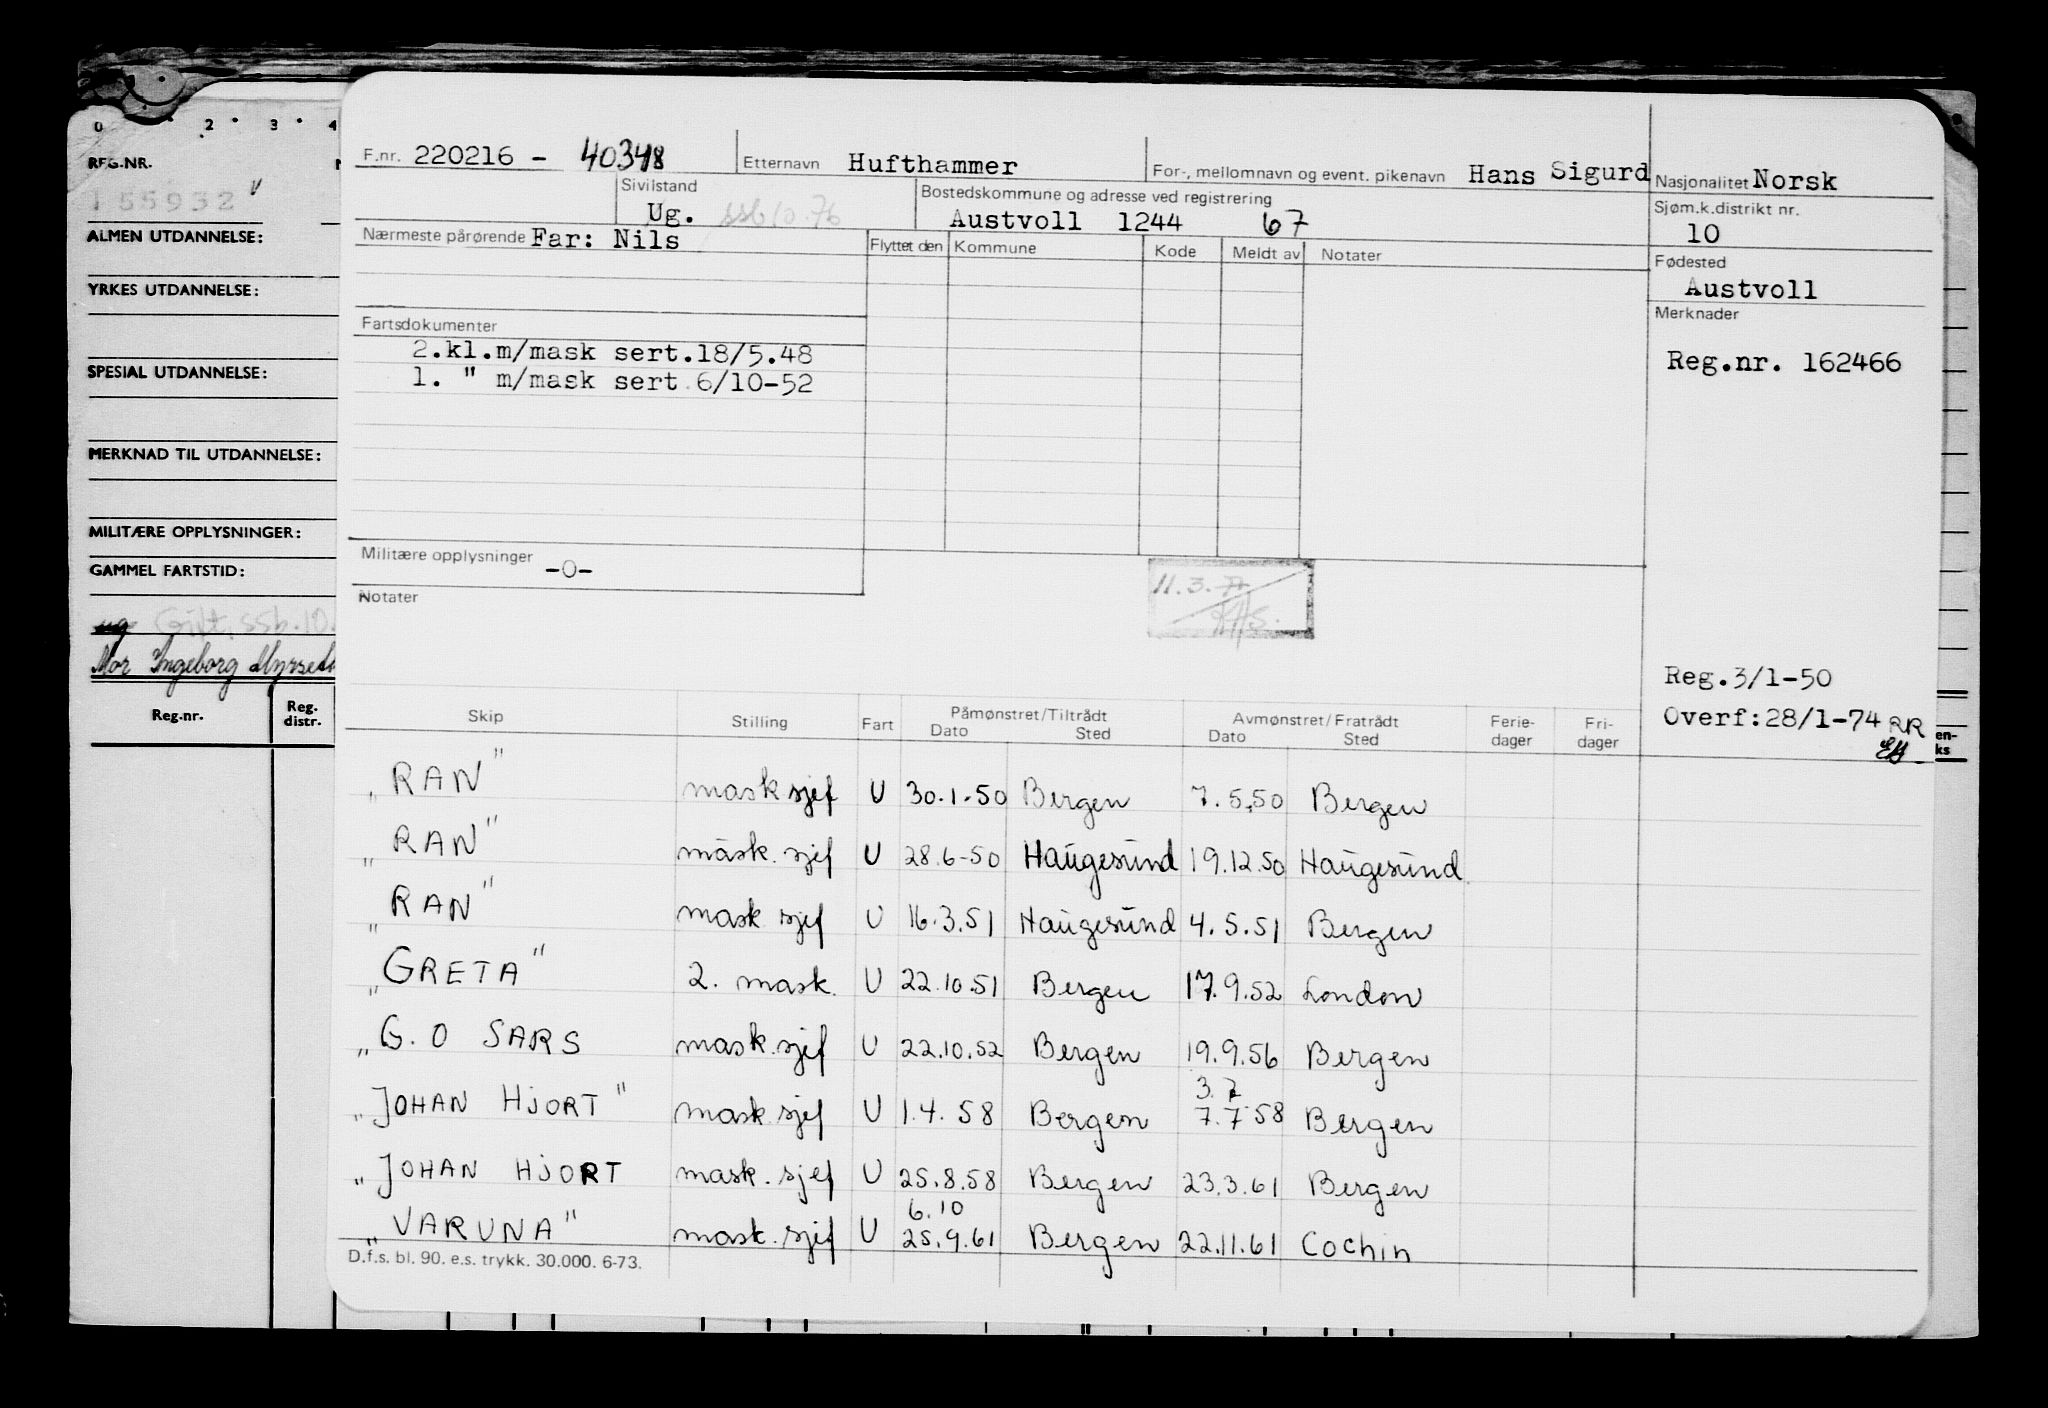 0 2 3 4
REG.NR.
155932
ALMEN UTDANNELSE:
YRKES UTDANNELSE:
SPESIAL UTDANNELSE:
MERKNAD TIL UTDANNELSE:
MILITÆRE OPPLYSNINGER:
GAMMEL FARTSTID:
ug Gift. ssb. 10.
Mor Ingeborg
Reg.nr. Reg. distr.
F.nr. 220216 - 40348 Etternavn Hufthammer For-, mellomnavn og event. pikenavn Hans Sigurd Nasjonalitet Norsk
Sivilstand Ug. ssb 10.76 Bostedskommune og adresse ved registrering Austvoll 1244 67 Sjøm.k.distrikt nr. 10
Nærmeste pårørende Far: Nils Flyttet den Kommune Kode Meldt av Notater Fødested
Austvoll
Fartsdokumenter Merknader
2.kl.m/mask sert.18/5.48 Reg.nr. 162466
1. " m/mask sert 6/10-52
Militære opplysninger -0-
11.3.77
Notater
Reg.3/1-50
Overf:28/1-74 RR
Skip Stilling Fart Påmønstret/Tiltrådt Dato Sted Avmønstret/Fratrådt Dato Sted Ferie- dager Fri- dager en- ks
„RAN" mask sjef U 30.1.50 Bergen 7.5.50 Bergen
„RAN" mask. sjef U 28.6-50 Haugesund 19.12.50 Haugesund
„RAN" mask sjef U 16.3.51 Haugesund 4.5.51 Bergen
„GRETA" 2. mask. U 22.10.51 Bergen 17.9.52 London
„G.O SARS mask.sjef U 22.10.52 Bergen 19.9.56 Bergen
3.7
„JOHAN HJORT" mask.sjef U 1.4.58 Bergen 7.7 58 Bergen
„JOHAN HJORT mask.sjef U 25.8.58 Bergen 23.3.61 Bergen
6.10
„VARUNA" mask.sjef U 25.9.61 Bergen 22.11.61 Cochin
D.f.s. bl. 90. e.s. trykk. 30.000. 6-73.